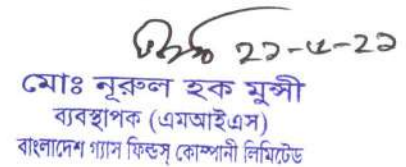 ২১-৫-২১
মোঃ নূরুল হক মুন্সী
ব্যবস্থাপক (এমআইএস)
বাংলাদেশ গ্যাস ফিল্ডস্ কোম্পানী লিমিটেড